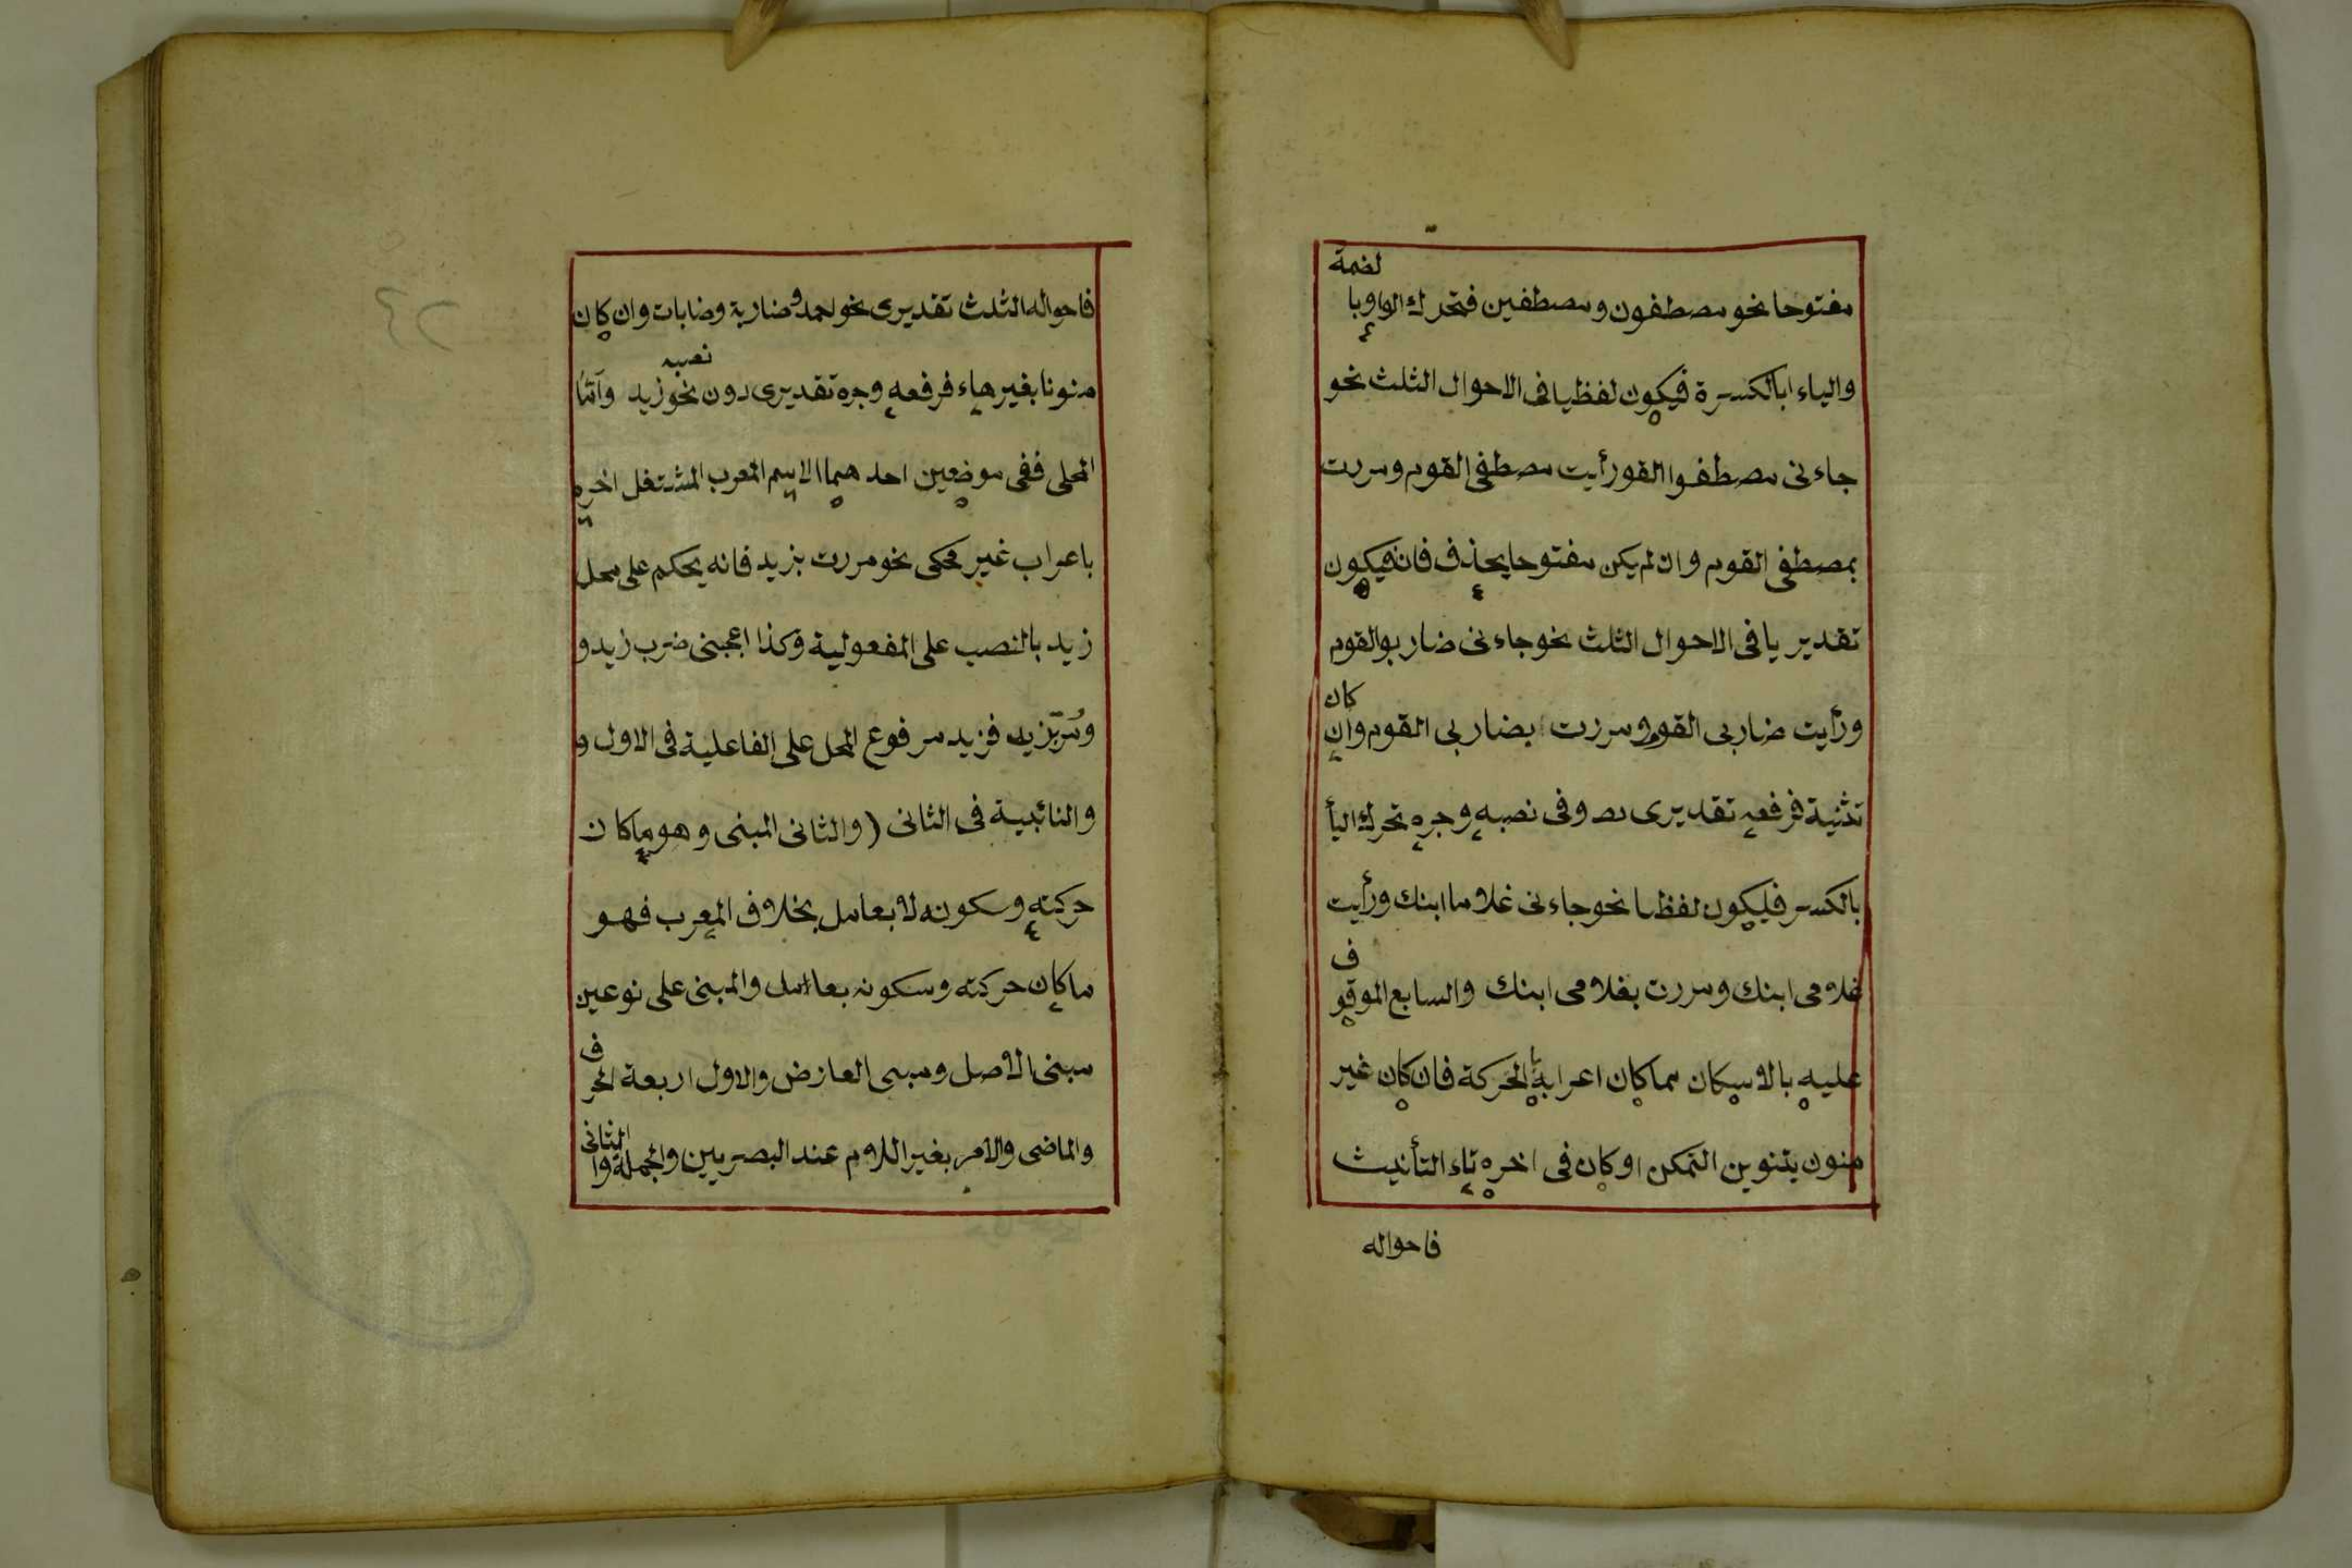 مفتوحا نحو مصطفون ومصطفين فتحرك الواو با
لضمة
والياء ابالكسرة فيكون لفظيا فى الاحوال الثلث نحو
جاءنى مصطفوا القو رأيت مصطفى القوم ومررت
بمصطفى القوم وان لم يكن مفتوحا يحذف فانه فيكون
تقدير يا فى الاحوال الثلث نحو جاءنى ضاربوالقوم
ورأيت ضاربى القوم ومررت بضاربى القوم وان
كان
تثنية فرفعه تقديرى وفى نصبه وجره تحرك اليأ
بالكسر فليكون لفظا نحو جاءنى غلاما ابنك ورأيت
غلامى ابنك ومررت بغلامى ابنك والسابع الموقو
ف
عليه بالاسكان مما كان اعرابه بالحركة فان كان غير
منون بتنوين التمكن او كان فى اخره تاء التأنيث
فاحواله
فاحواله الثلث تقديرى نحو احمد وضاربة وضابات وان كان
منونا بغير هاء فرفعه وجره تقديرى دون نصبه نحو زيد وأمّا
المحلى ففى موضعين احدهما الاسم المعرب المشتغل اخره
باعراب غير محكى نحو مررت بزيد فانه يحكم على محل
زيد بالنصب على المفعولية وكذا اعجبنى ضرب زيد و
ومُرّ بزيد فزيد مرفوع المحل على الفاعلية فى الاول و
والنائبية فى الثانى (والثانى المبنى وهو ما كان
حركته وسكونه لا بعامل بخلاف المعرب فهو
ما كان حركته وسكونه بعاامل والمبنى على نوعين
مبنى الاصل ومبنى العارض والاول اربعة الحر
ف
والماضى والامر بغير اللام عند البصريين والجملة وا
الثانى